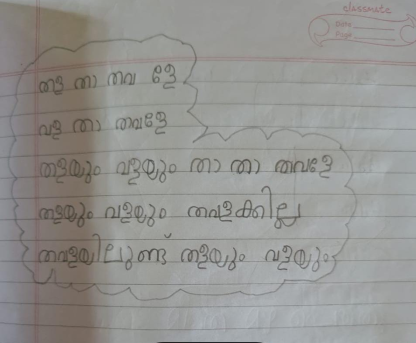 classmate
Date
Page
തള താ തവ ളേ
വള താ തവളേ
തളയും വളയും താ താ തവളേ
തളയും വളയും തവളക്കില്ല
തവളയിലുണ്ട് തളയും വളയും